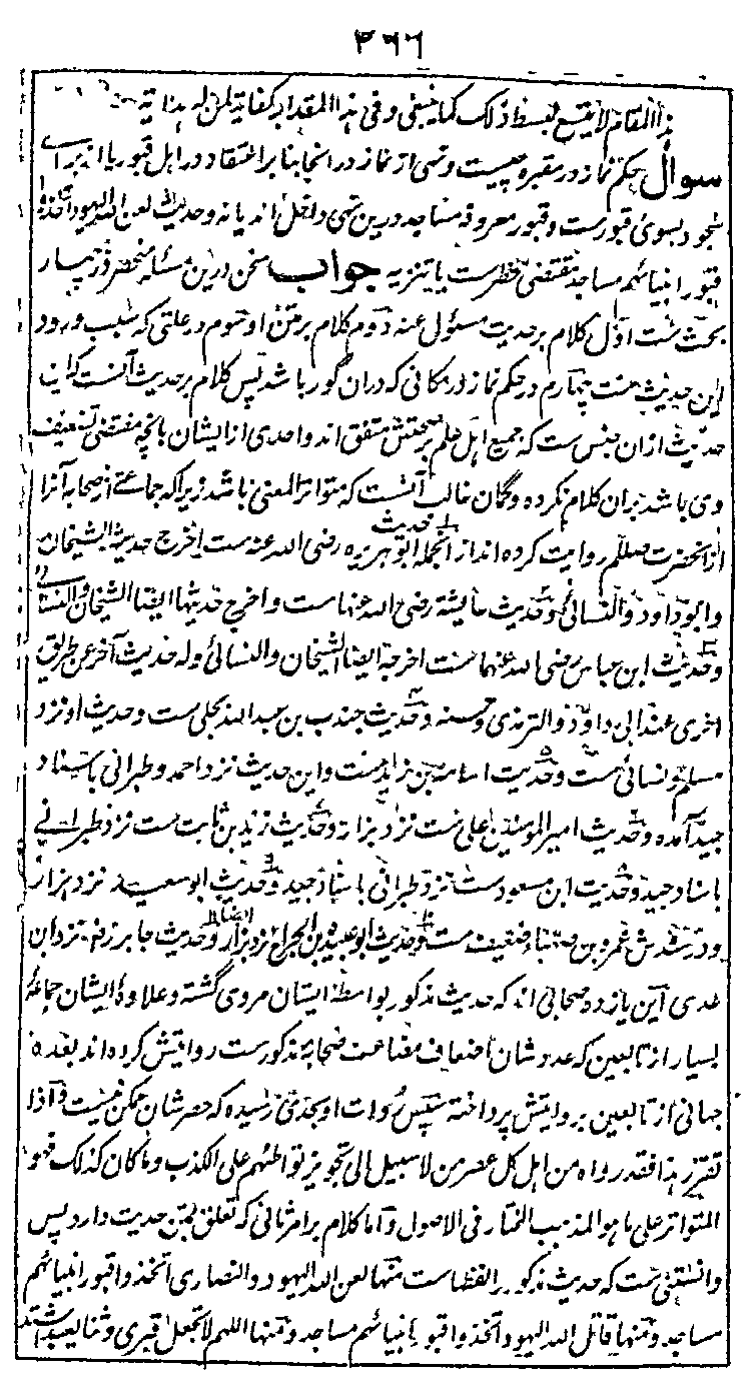 ٣٦٦
هذا المقام لا يتسع لبسط ذلك كما ينبغي وفي هذا المقدار كفاية لمن له هداية
سوال حكم نماز در مقبره چيست ونهى از نماز در انجا بنا بر اعتقاد در اهل قبور يا از براے
سجود بسوى قبورست وقبور معروفه مساجد درين نهى داخل اند يا نه وحديث لعن الله اليهود اتخذوا
قبور انبيائهم مساجد مقتضى حظرست يا تنزيه جواب سخن درين مسئله منحصر در چهار
بحث ست اول كلام بر حديث مسئول عنه دوم كلام بر متن او سوم در علتى كه سبب ورود
اين حديث ست چهارم در حكم نماز در مكانى كه دران گور باشد پس كلام بر حديث آنست كه اين
حديث ازان جنس ست كه جميع اهل علم بر صحتش متفق اند واحدى از ايشان بانچه مقتضى تضعيف
وى باشد بران كلام نكرده وگمان غالب آنست كه متواتر المعنى باشد زيراكه جماعتے از صحابه آنرا
از آنحضرت صللم روايت كرده اند از انجمله حديث ابو هريره رضى الله عنه ست اخرج حديثه الشيخان
وابو داود والنسائى وحديث عايشه رضى الله عنها ست واخرج حديثها ايضا الشيخان والنسائى
وحديث ابن عباس رضى الله عنهما ست اخرجه ايضا الشيخان والنسائى وله حديث آخر عن طريق
اخرى عند ابى داود والترمذى وحسنه وحديث جندب بن عبد الله بجلى ست وحديث او نزد
مسلم ونسائى ست وحديث اسامه بن زيد ست واين حديث نزد احمد وطبرانى باسناد
جيد آمده وحديث امير المومنين على ست نزد بزار وحديث زيد بن ثابت ست نزد طبرانے
باسناد جيد وحديث ابن مسعود ست نزد طبرانى باسناد جيد وحديث ابو سعيد نزد بزار
ودر سندش عمر بن صهبا ضعيف ست وحديث ابو عبيده بن الجراح نزد بزار ايضا وحديث جابر نزد ابن
عدى اين يازده صحابى اند كه حديث مذكور بواسطه ايشان مروى گشته وعلاوه ايشان جماعۀ
بسيار از تابعين كه عدد شان اضعاف مضاعف صحابه مذكور ست روايتش كرده اند بعده
جهانى از تابعين بروايتش پرداخته سپس روات او بحدى رسيده كه حصر شان ممكن نيست واذا
تقرر هذا فقد رواه من اهل كل عصر من لا سبيل الى تجويز تواطئهم على الكذب وما كان كذلك فهو
المتواتر على ما هو المذهب المختار فى الاصول واما كلام بر امر ثانى كه تعلق بمتن حديث دارد پس
دانستنى ست كه حديث مذكور را الفظها ست منها لعن الله اليهود والنصارى اتخذوا قبور انبيائهم
مساجد ومنها قاتل الله اليهود اتخذوا قبور انبيائهم مساجد ومنها اللهم لا تجعل قبرى وثنا يعبد اشتد